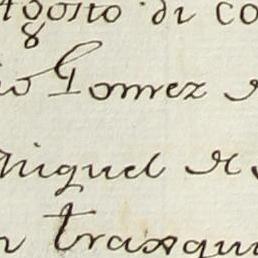 Agosto di co
io Gomez de
Miguel de
n traxqui